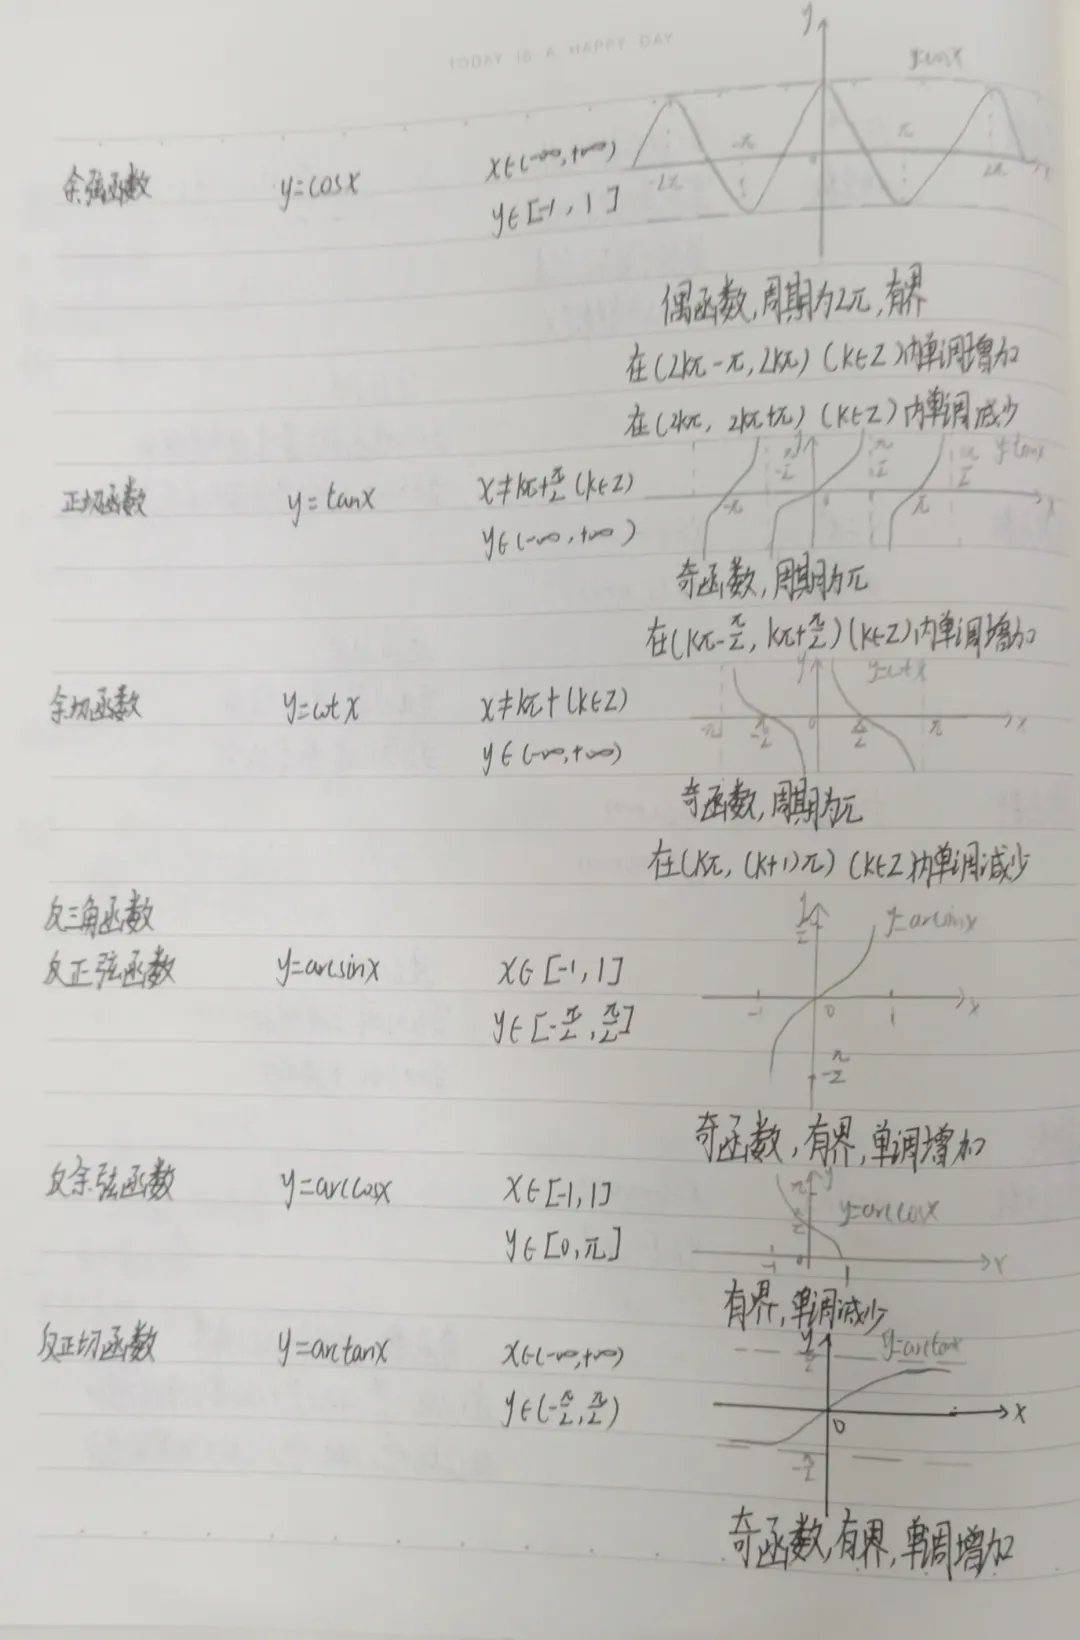 TODAY IS A HAPPY DAY
y
y=cosx
余弦函数 y=cosx x∈(-∞,+∞)
y∈[-1,1]
-2π -π 0 π 2π x
偶函数,周期为2π,有界
在(2kπ-π,2kπ)(k∈Z)内单调增加
在(2kπ, 2kπ+π)(k∈Z)内单调减少
正切函数 y=tanx x≠kπ+π/2(k∈Z)
y∈(-∞,+∞)
y y=tanx
-π -π/2 0 π/2 π x
奇函数,周期为π
在(kπ-π/2,kπ+π/2)(k∈Z)内单调增加
余切函数 y=cotx x≠kπ+(k∈Z)
y∈(-∞,+∞)
y y=cotx
-π -π/2 0 π/2 π x
奇函数,周期为π
在(kπ,(k+1)π)(k∈Z)内单调减少
反三角函数
反正弦函数 y=arcsinx x∈[-1,1]
y∈[-π/2,π/2]
π/2 y=arcsinx
-1 0 1 x
-π/2
奇函数,有界,单调增加
反余弦函数 y=arccosx x∈[-1,1]
y∈[0,π]
π y
π/2 y=arccosx
-1 0 1 x
有界,单调减少
反正切函数 y=arctanx x∈(-∞,+∞)
y∈(-π/2,π/2)
y π/2 y=arctanx
0 x
-π/2
奇函数,有界,单调增加